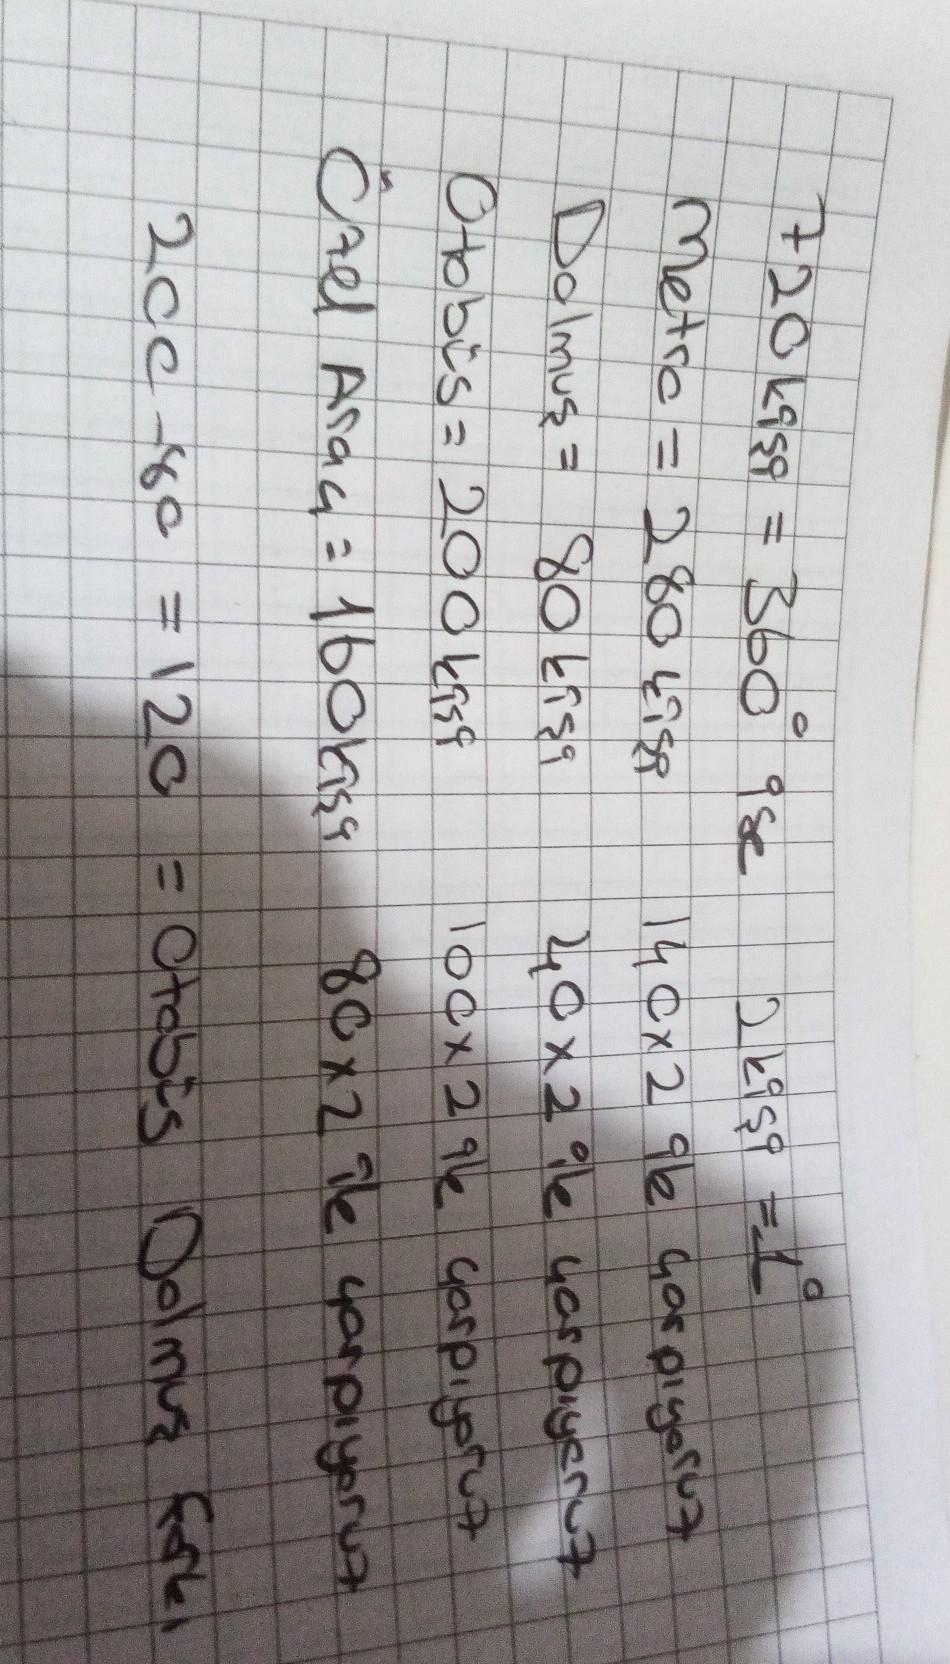 720 kişi = 360° ise 2 kişi = 1°
Metro = 280 kişi 140x2 ile çarpıyoruz
Dolmuş = 80 kişi 40x2 ile çarpıyoruz
Otobüs = 200 kişi 100x2 ile çarpıyoruz
Özel Araç = 160 kişi 80x2 ile çarpıyoruz
200-80 = 120 = Otobüs Dolmuş farkı